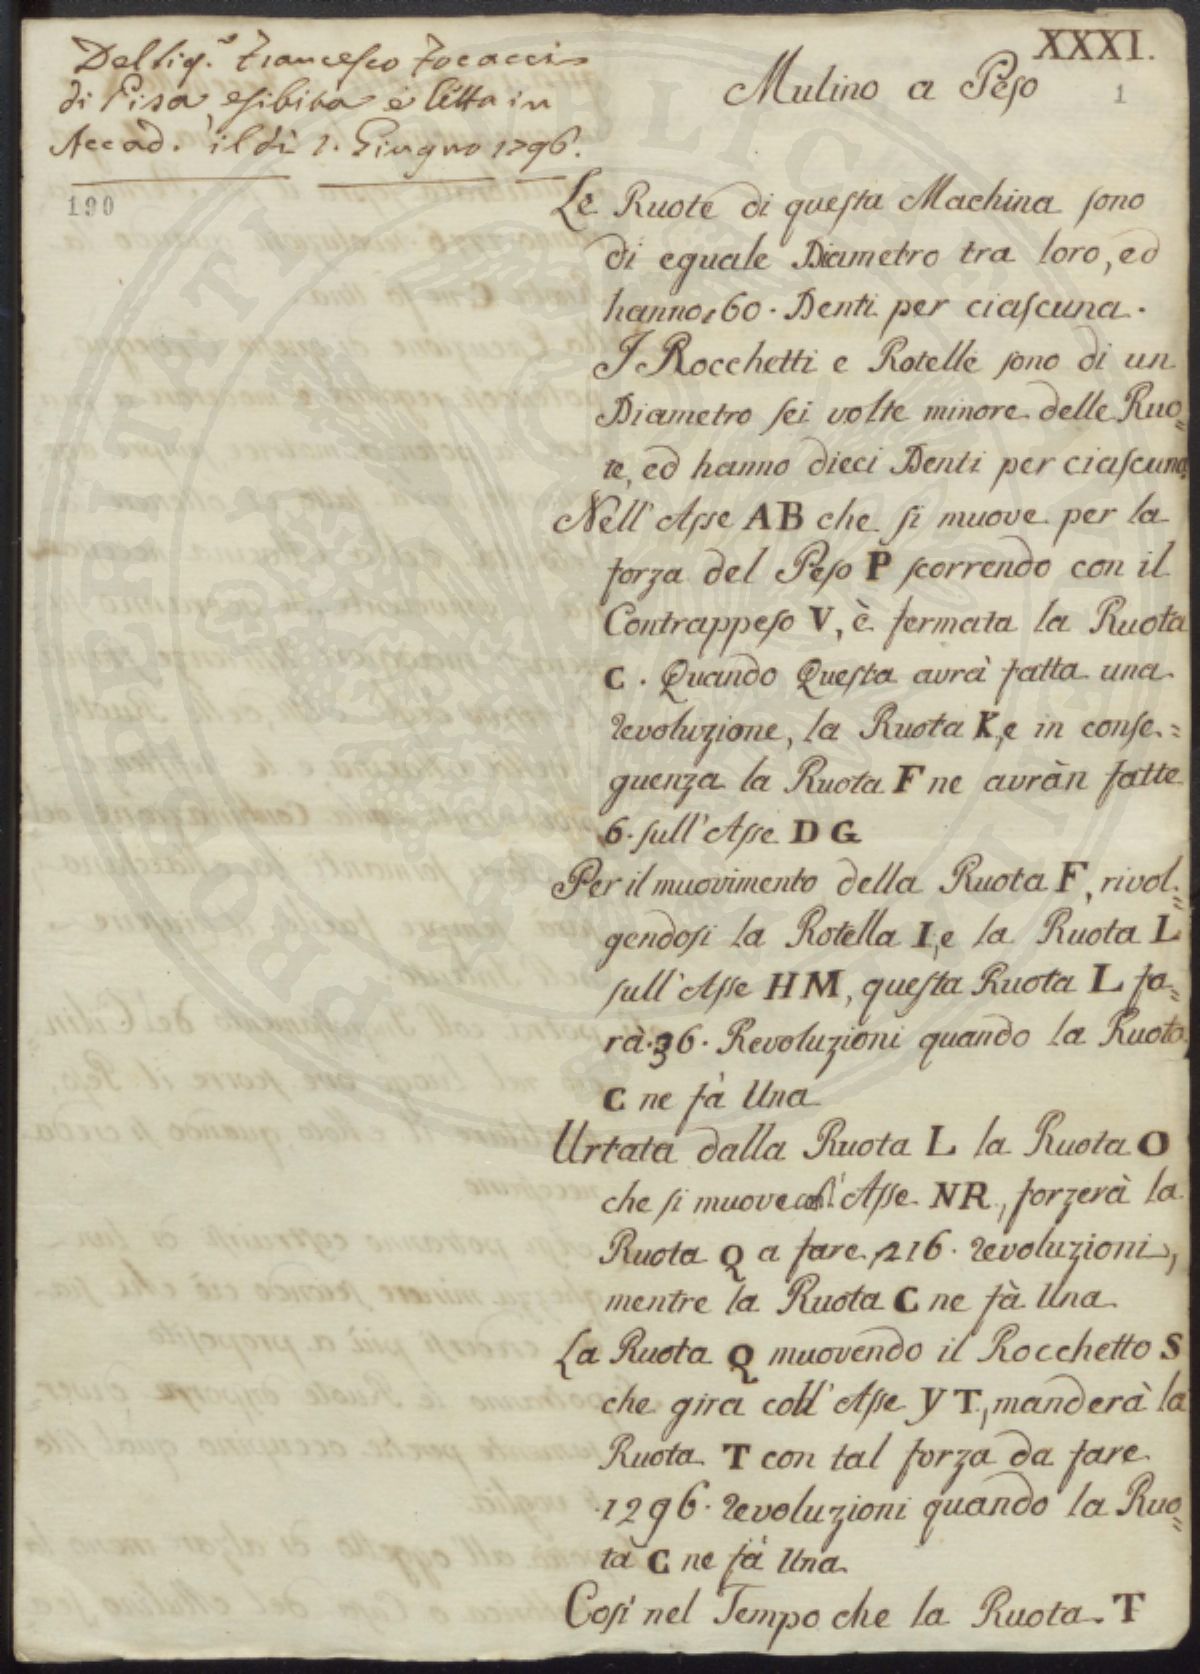 Del Sig.e Francesco Focacci
di Pisa, esibita e letta in
Accad. il dì 1. Giugno 1796.
190
XXXI.
Mulino a Peso
1
Le Ruote di questa Machina sono
di eguale Diametro tra loro, ed
hanno 60. Denti per ciascuna.
I Rocchetti e Rotelle sono di un
Diametro sei volte minore delle Ruo=
te, ed hanno dieci Denti per ciascuno.
Nell' Asse AB che si muove per la
forza del Peso P scorrendo con il
Contrappeso V, è fermata la Ruota
C. Quando Questa avrà fatta una
revoluzione, la Ruota K, e in conse=
guenza la Ruota F ne avràn fatte
6. sull' Asse DG
Per il muovimento della Ruota F, rivol=
gendosi la Rotella I, e la Ruota L
sull' Asse HM, questa Ruota L fa=
rà .36. Revoluzioni quando la Ruota
C ne fà Una
Urtata dalla Ruota L la Ruota O
che si muove coll' Asse NR, forzerà la
Ruota Q a fare 216. revoluzioni,
mentre la Ruota C ne fà Una.
La Ruota Q muovendo il Rocchetto S
che gira coll' Asse YT, manderà la
Ruota T con tal forza da fare
.1296. revoluzioni quando la Ruo=
ta C ne fà Una.
Così nel Tempo che la Ruota T